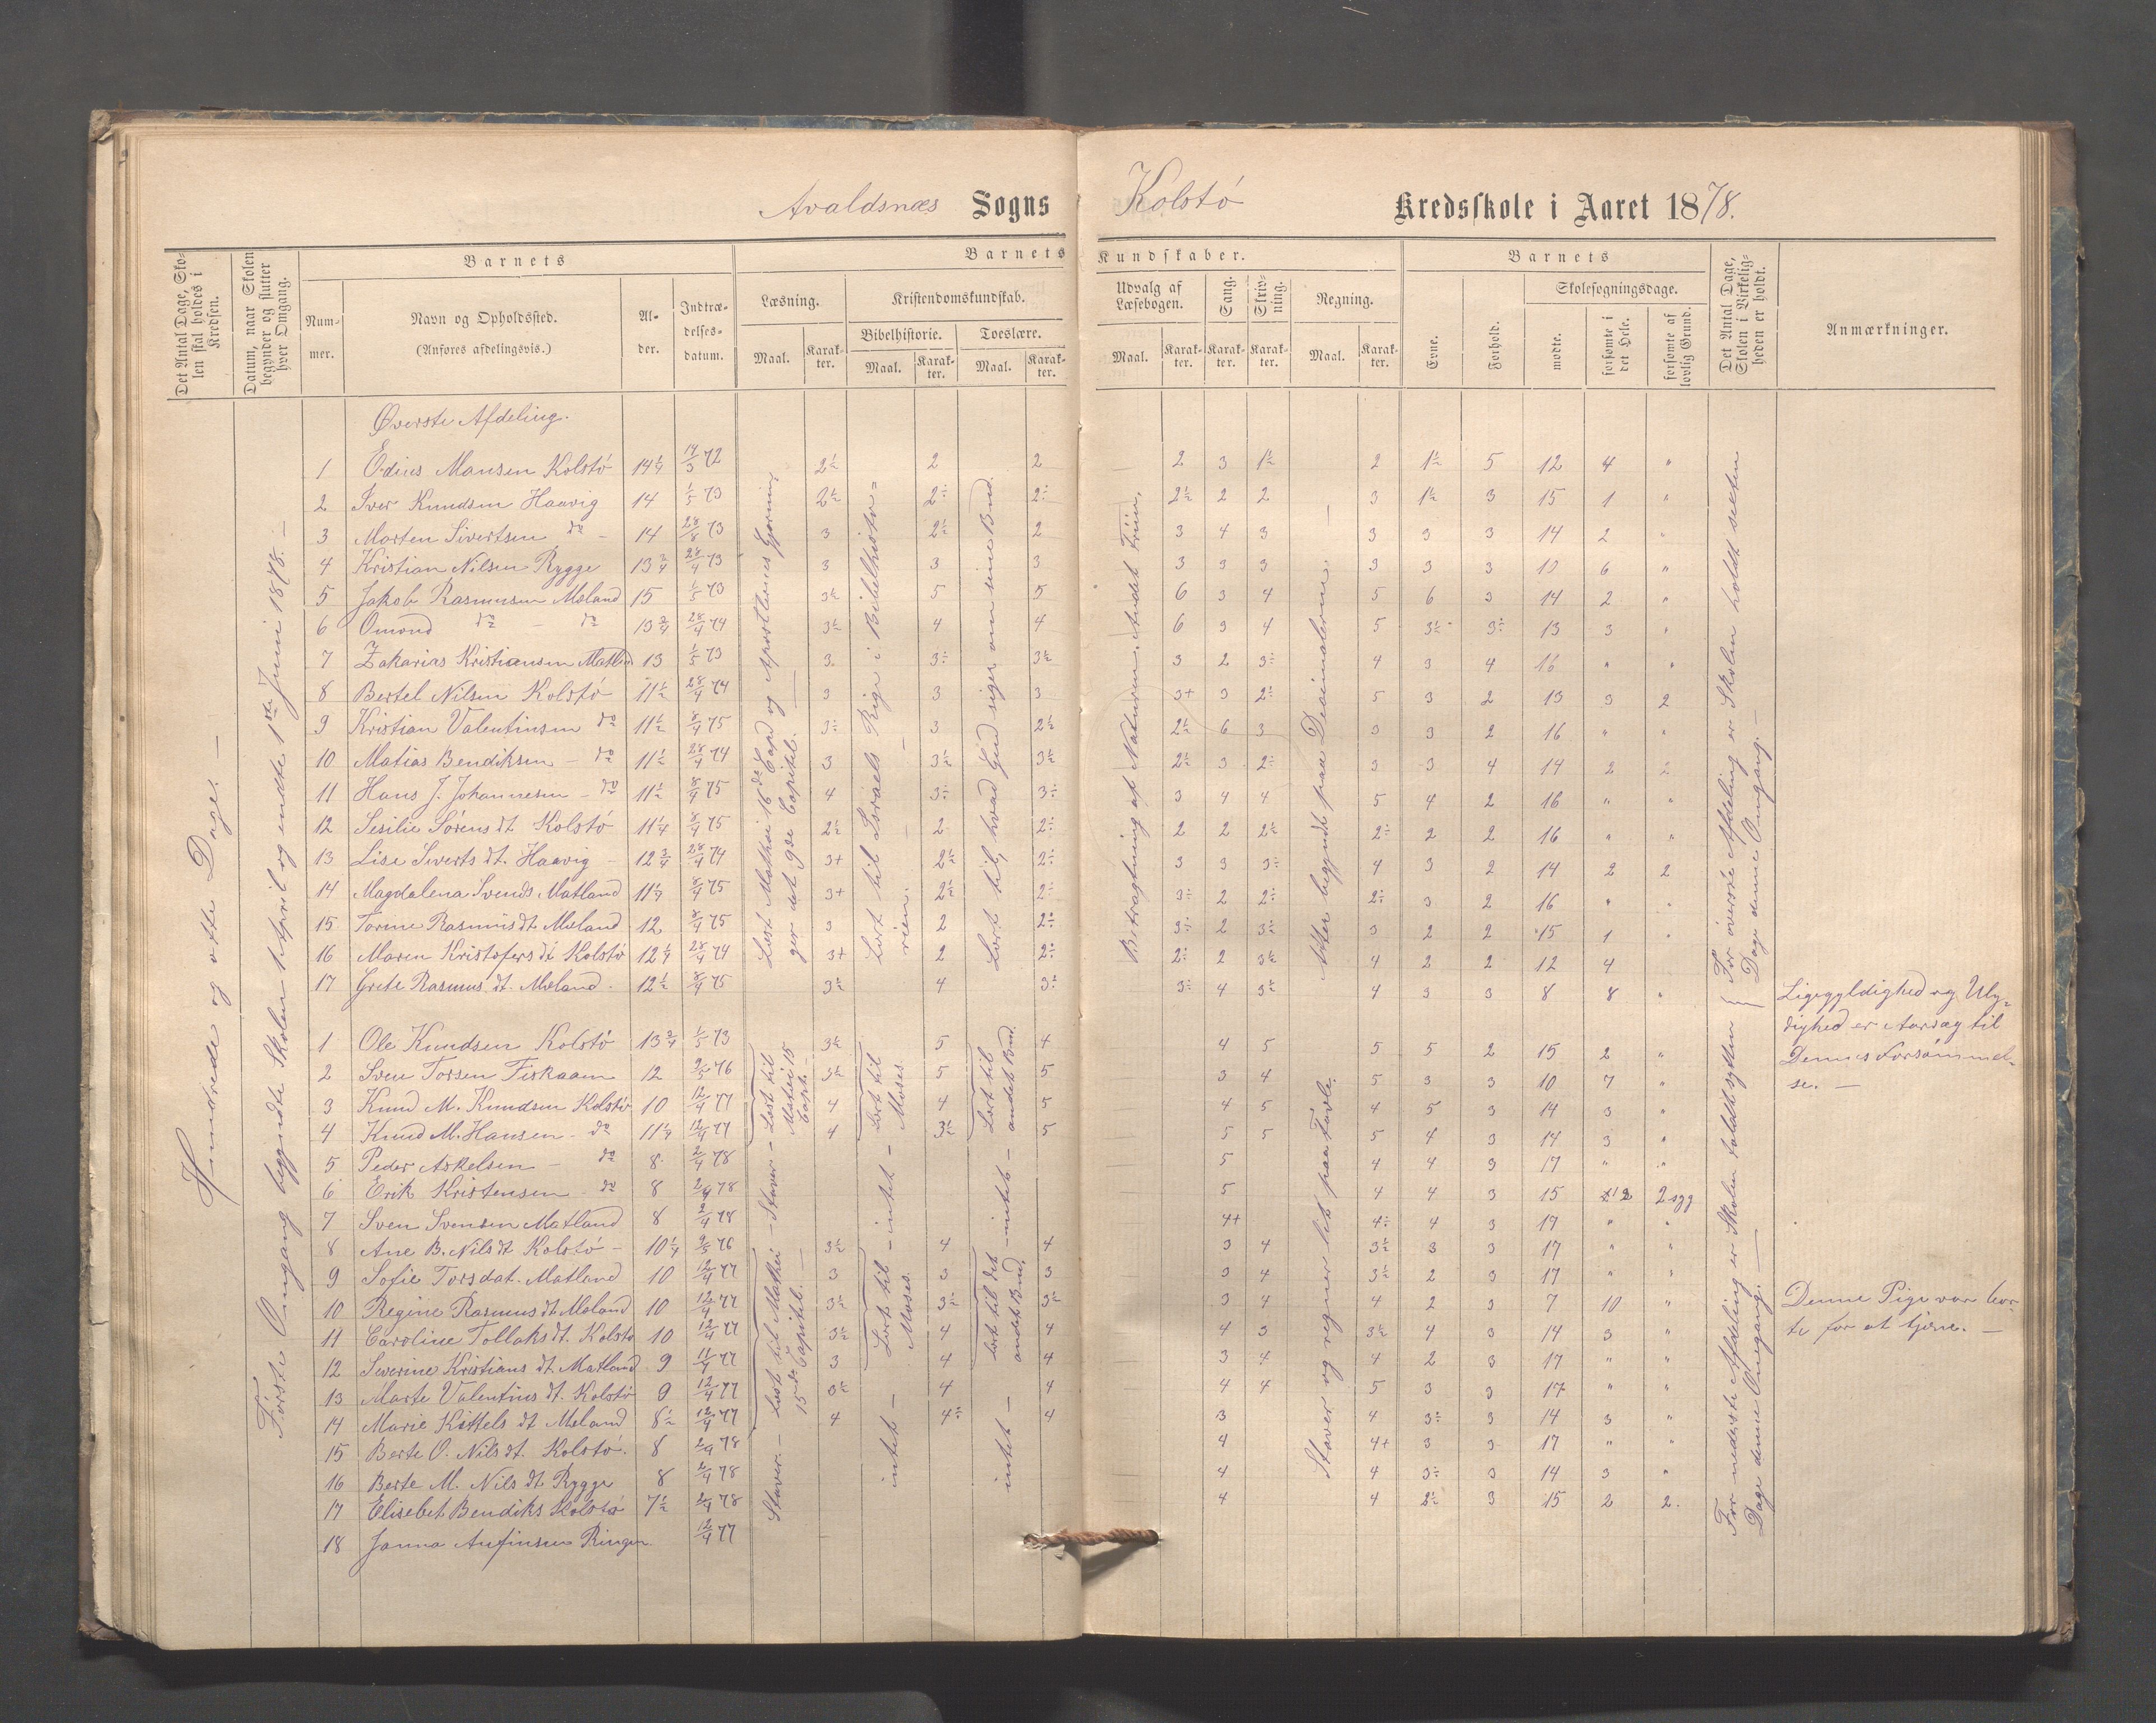 Avaldsnæs Sogns Kolstø Kredsskole i Aaret 1878.
Det Antal Dage, Skolen skal holdes i Kredsen.
Datum, naar Skolen begynder og slutter hver Omgang.
Barnets
Nummer.
Navn og Opholdssted.
(Anføres afdelingsvis.)
Alder.
Indtrædelsesdatum.
Barnets Kundskaber.
Læsning.
Maal. Karakter.
Kristendomskundskab.
Bibelhistorie.
Maal. Karakter.
Troeslære.
Maal. Karakter.
Udvalg af Læsebogen.
Maal. Karakter.
Sang.
Karakter.
Skrivning.
Karakter.
Regning.
Maal. Karakter.
Barnets
Evne.
Forhold.
Skolesøgningsdage.
mødte.
forsømte i det Hele.
forsømte af lovlig Grund.
Det Antal Dage, Skolen i Virkeligheden er holdt.
Anmærkninger.
Hundrede og otte Dage. —
Første Omgang begyndte Skolen 1 April og endte 1ste Juni 1878. —
Øverste Afdeling.
1 Edius Mansen Kolstø 14¼ 14/3 72 2½ 2 2 2 3 1½ 2 1½ 5 12 4 "
2 Iver Knudsen Haavig 14 1/5 73 2½ 2÷ 2÷ 2½ 2 2 3 1½ 3 15 1 "
3 Morten Sivertsen do - 14 28/8 73 3 2½ 2 3 4 3 3 3 3 14 2 "
4 Kristian Nilsen Rygge 13¾ 28/4 73 3 3 3 3 3 3 3 3 3 10 6 "
5 Jakob Rasmusen Mæland 15 1/5 73 3½ 5 5 6 3 4 5 6 3 14 2 "
6 Omond do - do 13¾ 28/4 74 3½ 4 4 6 3 4 5 3½ 3÷ 13 3 "
7 Zakarias Kristiansen Matland 13 1/5 73 3 3÷ 3½ 3 2 3÷ 4 3 4 16 " "
8 Bertel Nilsen Kolstø 11½ 28/4 74 3 3 3 3+ 3 2÷ 5 3 2 13 3 2
9 Kristian Valentinsen do 11½ 8/4 75 3÷ 3 2½ 2½ 6 3 3 3 2 16 " "
10 Matias Bendiksen - do 11½ 28/4 74 3 3½ 3½ 2½ 3 2÷ 3 3 4 14 2 2
11 Hans J. Johannesen - do 11½ 8/4 75 4 3÷ 3÷ 3 4 4 5 4 2 16 " "
12 Sesilie Sørens dt. Kolstø 11¼ 8/4 75 2½ 2 2÷ 2 2 2½ 2÷ 2 2 16 " "
13 Lise Siverts dt. Haavig 12¾ 28/4 74 3+ 2½ 2÷ 3 3 3÷ 4 3 2 14 2 2
14 Magdalena Svends Matland 11¼ 8/4 75 3+ 2½ 2÷ 3÷ 2 2÷ 2÷ 3 2 16 " "
15 Torine Rasmus dt. Mæland 12 8/4 75 3 2 2÷ 3÷ 2 3÷ 3 2 2 15 1 "
16 Maren Kristofers dt Kolstø 12¼ 28/4 74 3+ 2 2÷ 2÷ 2 3½ 4 2 2 12 4
17 Grete Rasmus dt. Mæland. 12½ 8/4 75 3½ 4 3÷ 3÷ 4 3½ 4 3 3 8 8 "
Læst Mathei 16de Cap og Apostlenes Gjerninger det 9de Capitel. —
Lært til Israels Rige i Bibelhistorien. —
Lært til, hvad Gud siger om sine Bud.
Betragtning af Naturen. Andet Trin.
Atter begyndt paa Desimalerne. —
For øverste Afdeling er Skolen holdt sexten Dage denne Omgang. —
Ligegyldighed og Uly=
dighed er Aarsag til
Dennes Forsømmel-
se. —
1 Ole Knudsen Kolstø 13¾ 1/5 73 3½ 5 4 4 5 5 5 2 15 2 "
2 Sven Torsen Fiskaaen 12 9/5 76 3½ 5 5 3 4 5 3 3 10 7 "
3 Knud M. Knudsen Kolstø 10 12/4 77 4 4 5 4 5 4 5 3 14 3 "
4 Knud M. Hansen - do 11¼ 12/4 77 4 3½ 5 5 5 5 4 3 14 3 "
5 Peder Askelsen - do 8 2/4 78 5 4 4 3 17 " "
6 Erik Kristensen do 8 2/4 78 5 4 4 3 15 2 2 syg
7 Sven Svensen Matland 8 2/4 78 4+ 4÷ 4 3 17 " "
8 Ane B. Nils dt Kolstø - 10¼ 9/5 76 3½ 4 4 3 4 3½ 3 3 17 " "
9 Sofie Torsdat. Matland 10 12/4 77 3 3 3 3 4 3½ 2 3 17 " "
10 Regine Rasmus dt. Mæland 10 12/4 77 3½ 3½ 3½ 3 4 4 2 3 7 10 "
11 Caroline Tollaks dt. Kolstø 10 12/4 77 3½ 4 4 4 3 3½ 4 3 14 3 "
12 Severine Kristians dt. Matland 9 11/4 77 3 4 4 3 4 4 2 3 17 " "
13 Marte Valentins dt. Kolstø 9 12/4 77 3½ 4 4 4 4 5 3 3 17 " "
14 Marie Kittels dt Mæland 8½ 12/4 77 4 4÷ 4 3 4 3÷ 3 14 3 "
15 Berte O. Nils dt. Kolstø. 8 2/4 78 4 4+ 3 3 17 " "
16 Berte M. Nils dt Rygge 8 2/4 78 4 4 3÷ 3 14 3 "
17 Elisebet Bendiks Kolstø 7½ 2/4 78 4 4 2½ 3 15 2 2.
18 Janna Anfinsen Ringen 12/4 77
Læst til Mathei 15 Capt.
- Staver. -
Læst til Mathei 15de Capitel. —
Staver. -
Lært til Moses
- intet -
Lært til Moses.
intet -
Lært til andet Bud.
- intet -
lært til det andet Bud.
intet -
Staver og regner lit paa Tavle.
For nederste Afdeling er Skolen holdt sytten Dage denne Omgang. —
Denne Pige var bor-
te for at tjene. —